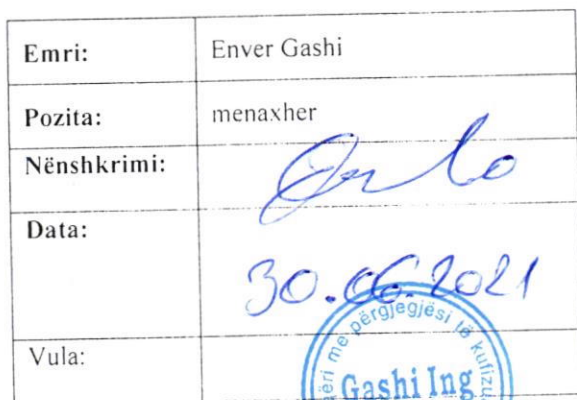 Emri: Enver Gashi
Pozita: menaxher
Nënshkrimi:
Data: 30.06.2021
Vula:
me përgjegjësi të
Gashi Ing